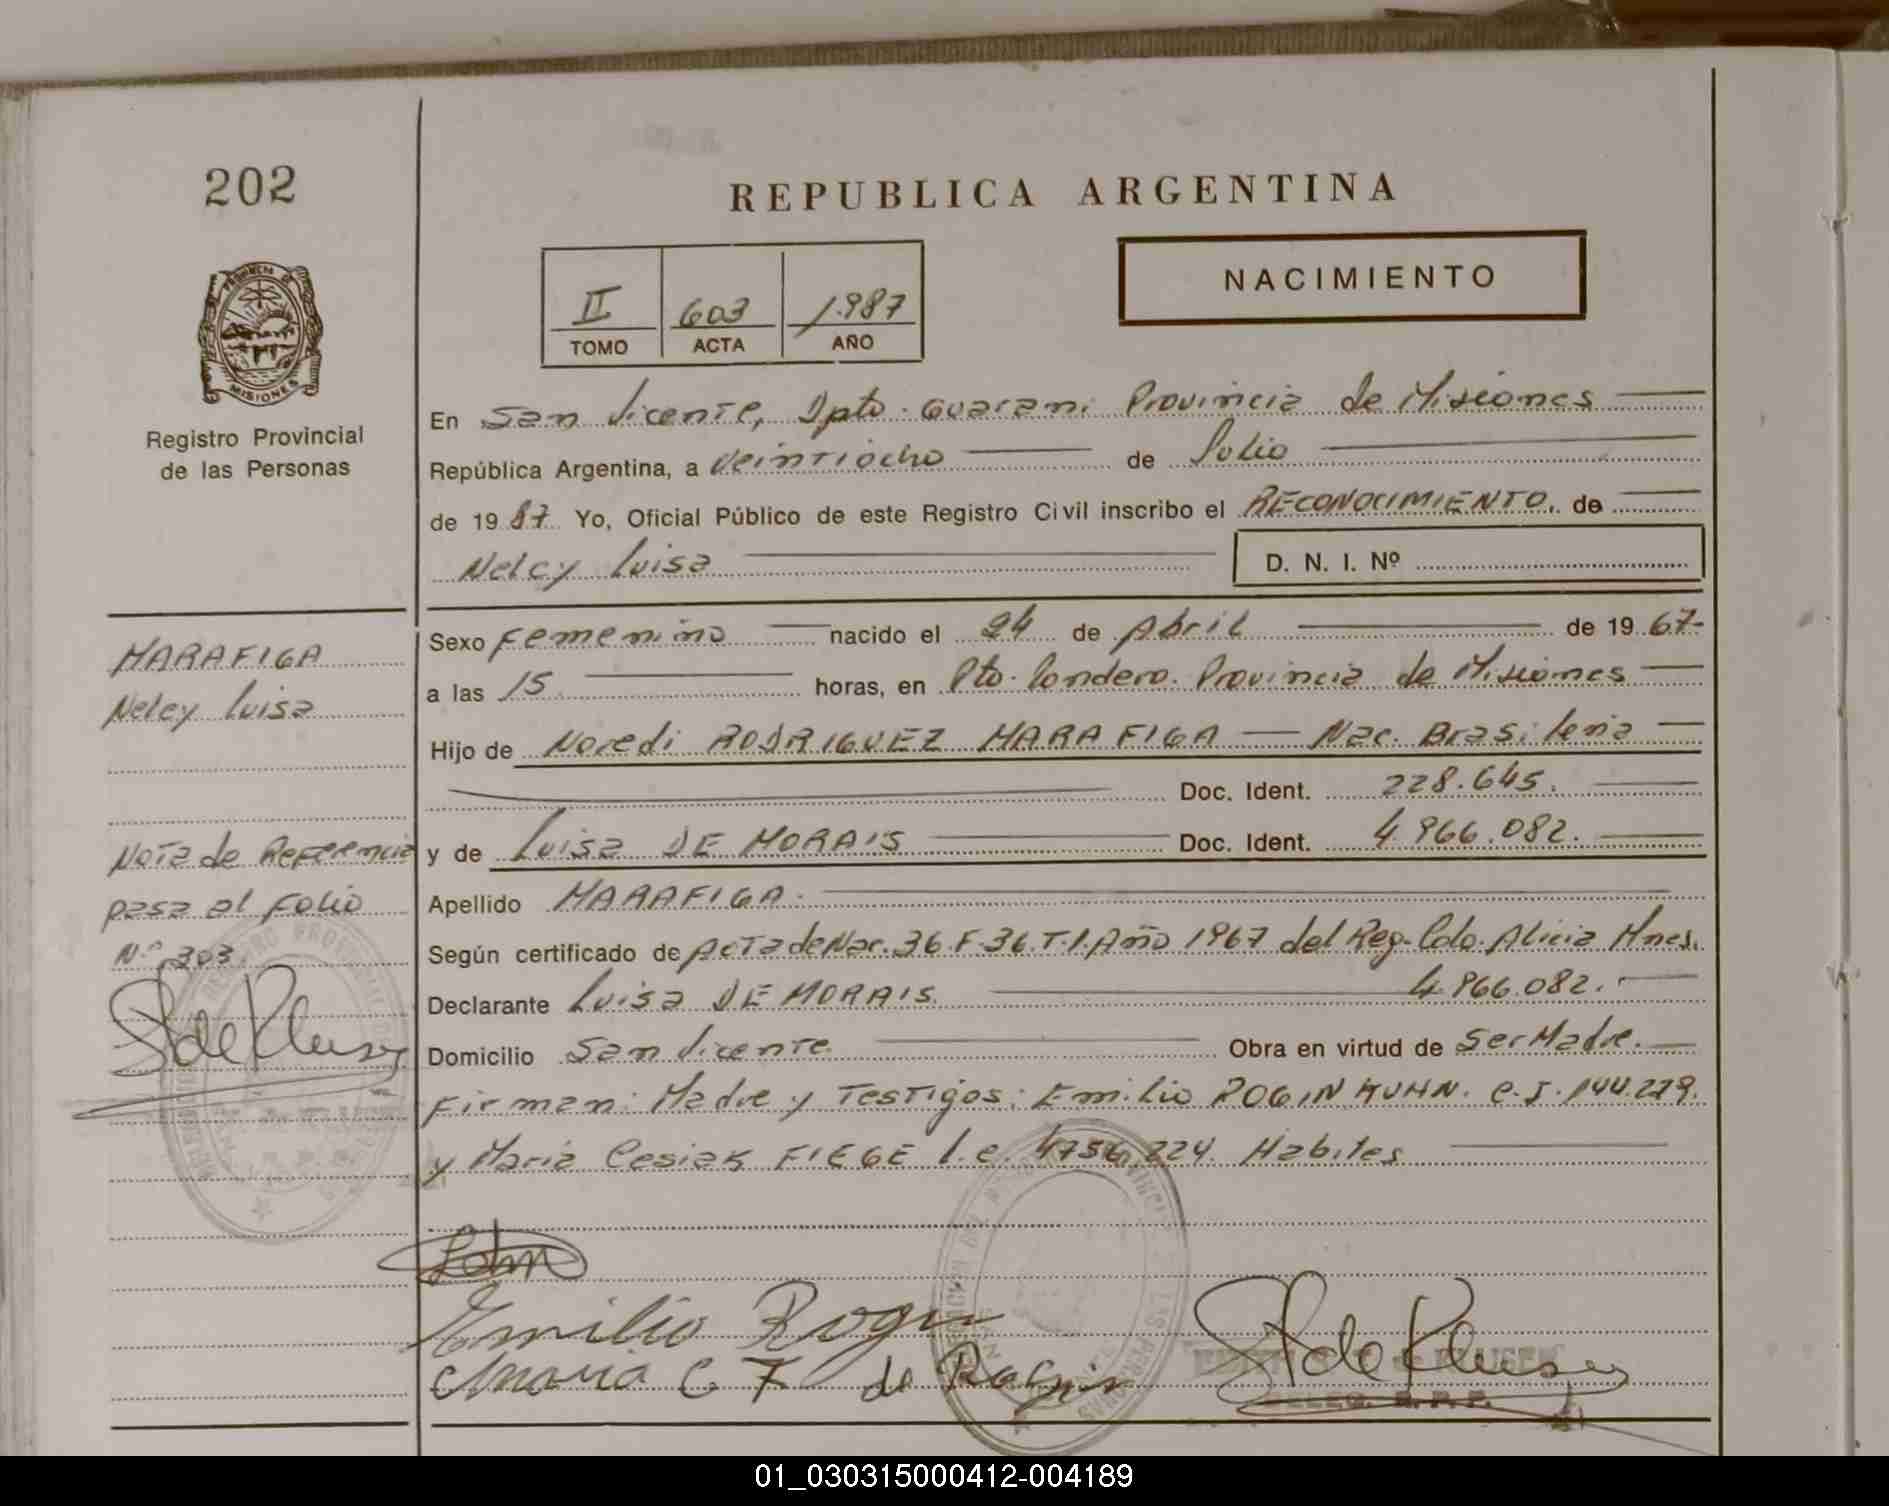 202
REPUBLICA ARGENTINA
PROVINCIA DE
MISIONES
Registro Provincial
de las Personas
II 603 1.987
TOMO ACTA AÑO
NACIMIENTO
En San Vicente, Dpto. Guarani Provincia de Misiones
República Argentina, a veintiocho de Julio
de 1987 Yo, Oficial Público de este Registro Civil inscribo el RECONOCIMIENTO. de
Nelcy Luisa D. N. I. Nº
Sexo Femenino nacido el 24 de Abril de 1967-
a las 15 horas, en Pto. Londero. Provincia de Misiones
Hijo de Noredi RODRIGUEZ MARAFIGA — Nac. Brasileña
Doc. Ident. 228.645.
y de Luisa DE MORAIS Doc. Ident. 4.966.082.
Apellido MARAFIGA.
Según certificado de Acta de Nac. 36.F.36.T.1.Año 1967 del Reg. Cdo. Alicia Mnes.
Declarante Luisa DE MORAIS 4.966.082.
Domicilio San Vicente Obra en virtud de Ser Madre.
Firman: Madre y Testigos: Emilio ROGIN KUHN. C.I. 144.279.
y Maria Cesiak FIEGE L.C. 4756.224. Habiles
Emilio Rogin
Maria C F de Rogin
MARAFIGA
Nelcy Luisa
Nota de Referencia
pasa al Folio
Nº 303
01_030315000412-004189